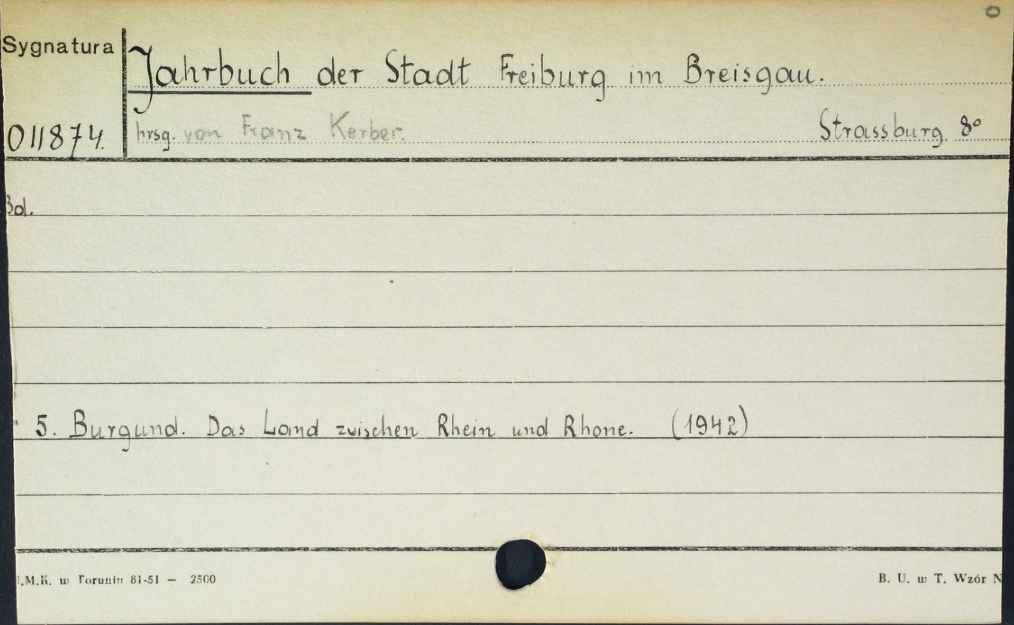 Sygnatura
Jahrbuch der Stadt Freiburg im Breisgau.
011874.
hrsg. von Franz Kerber. Strassburg 8°
Bd.
5. Burgund. Das Land zwischen Rhein und Rhone. (1942)
.M.K. w Toruniu 81-51 — 2500
B. U. w T. Wzór N